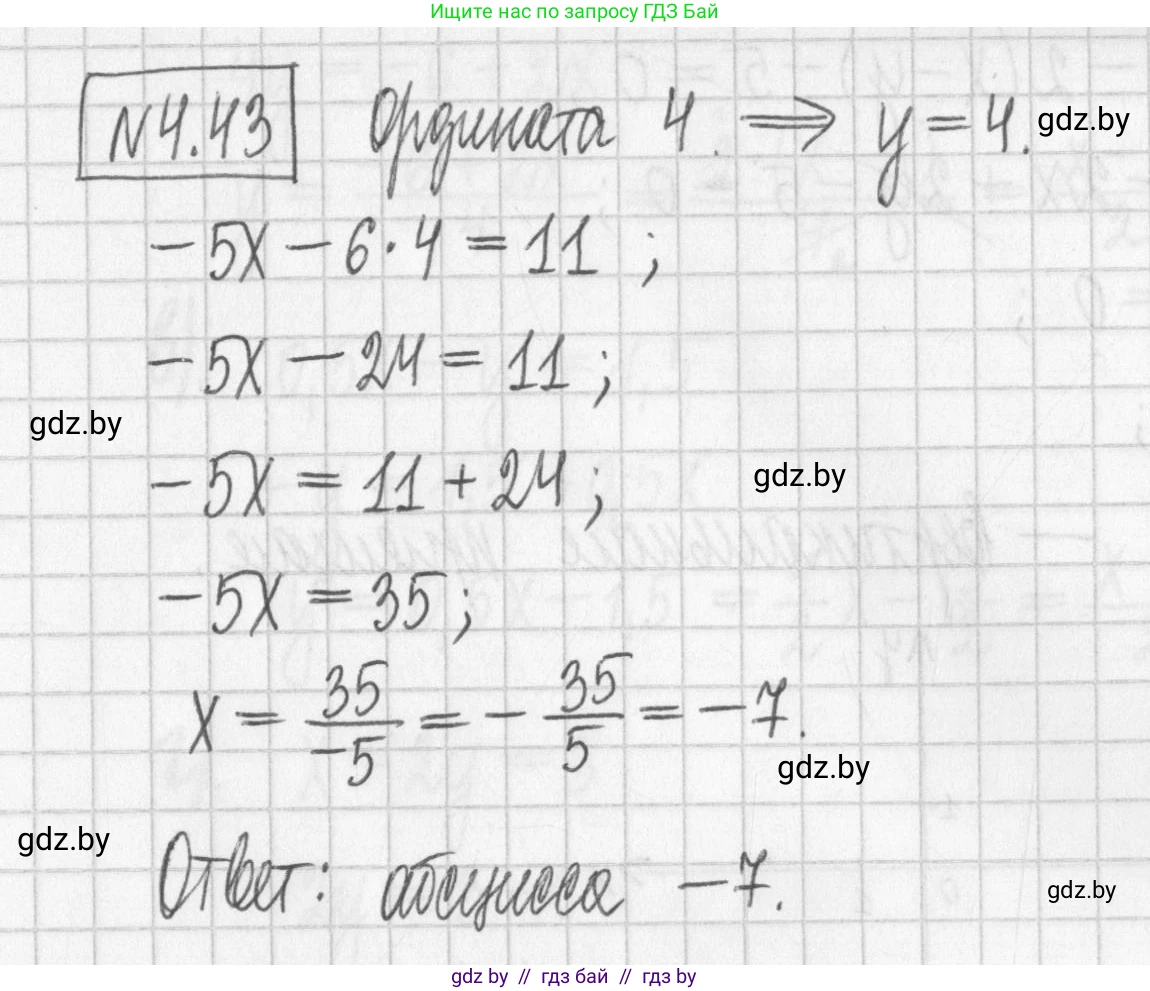 Ищите нас по запросу ГДЗ Бай
N4.43 Ордината 4. ⟹ y = 4. gdz.by
-5x - 6·4 = 11 ;
-5x - 24 = 11 ;
gdz.by
-5x = 11 + 24 ; gdz.by
-5x = 35 ;
x = 35/-5 = - 35/5 = -7.
gdz.by
gdz.by
Ответ: абсцисса -7.
gdz.by
gdz by // гдз бай // гдз by